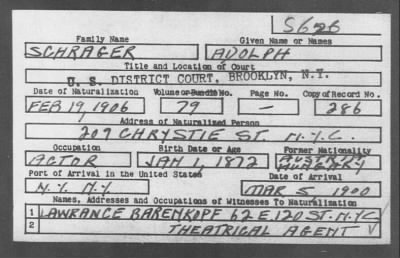 S626
Family Name Given Name or Names
SCHRAGER ADOLPH
Title and Location of Court
U. S. DISTRICT COURT, BROOKLYN, N.Y.
Date of Naturalization Volume or Bundle No. Page No. Copy of Record No.
FEB 19, 1906 79 — 286
Address of Naturalized Person
209 CHRYSTIE ST. N.Y.C.
Occupation Birth Date or Age Former Nationality
ACTOR JAN 1, 1872 AUSTRIA HUNGARY
Port of Arrival in the United States Date of Arrival
N.Y. N.Y. MAR 5 1900
Names, Addresses and Occupations of Witnesses To Naturalization
1 LAWRANCE BARENKOPF 62 E. 120 ST. N.Y.C
2 THEATRICAL AGENT